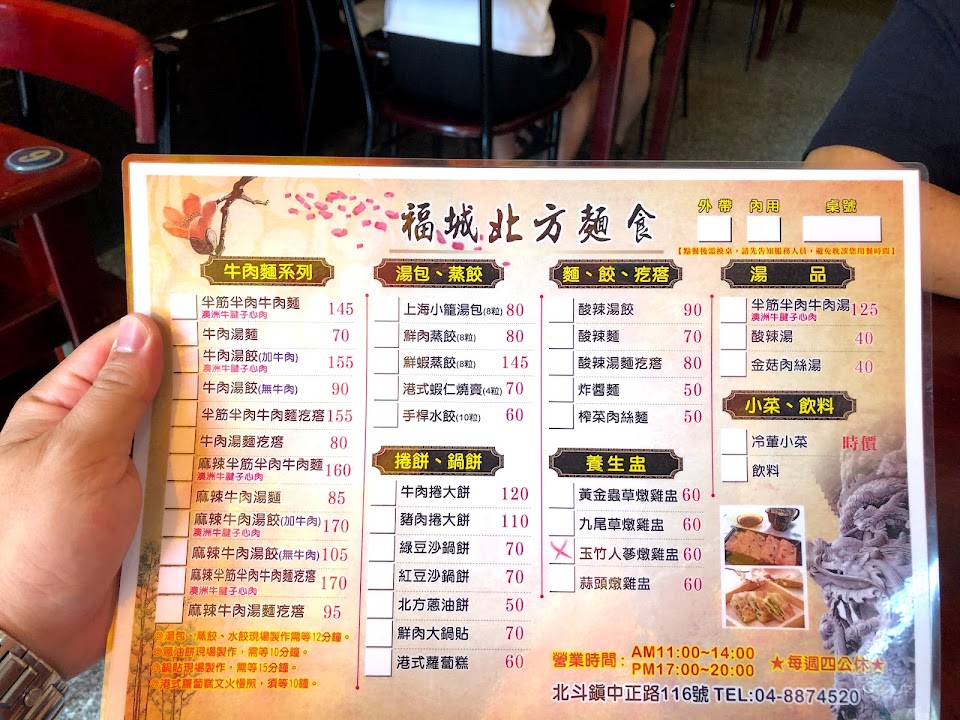 福城北方麵食
外帶 內用 桌號
【點餐後需換桌，請先告知服務人員，避免耽誤您用餐時間】
牛肉麵系列
半筋半肉牛肉麵 145
澳洲牛腱子心肉
牛肉湯麵 70
牛肉湯餃(加牛肉) 155
澳洲牛腱子心肉
牛肉湯餃(無牛肉) 90
半筋半肉牛肉麵疙瘩 155
牛肉湯麵疙瘩 80
麻辣半筋半肉牛肉麵 160
澳洲牛腱子心肉
麻辣牛肉湯麵 85
麻辣牛肉湯餃(加牛肉) 170
澳洲牛腱子心肉
麻辣牛肉湯餃(無牛肉) 105
麻辣半筋半肉牛肉麵疙瘩 170
澳洲牛腱子心肉
麻辣牛肉湯麵疙瘩 95
◎湯包、蒸餃、水餃現場製作需等12分鐘。
◎蔥油餅現場製作，需等10分鐘。
◎鍋貼現場製作，需等15分鐘。
◎港式蘿蔔糕文火慢煎，須等10分鐘。
湯包、蒸餃
上海小籠湯包(8粒) 80
鮮肉蒸餃(8粒) 80
鮮蝦蒸餃(8粒) 145
港式蝦仁燒賣(4粒) 70
手桿水餃(10粒) 60
捲餅、鍋餅
牛肉捲大餅 120
豬肉捲大餅 110
綠豆沙鍋餅 70
紅豆沙鍋餅 70
北方蔥油餅 50
鮮肉大鍋貼 70
港式蘿蔔糕 60
麵、餃、疙瘩
酸辣湯餃 90
酸辣麵 70
酸辣湯麵疙瘩 80
炸醬麵 50
榨菜肉絲麵 50
養生盅
黃金蟲草燉雞盅 60
九尾草燉雞盅 60
玉竹人蔘燉雞盅 60
蒜頭燉雞盅 60
湯 品
半筋半肉牛肉湯 125
澳洲牛腱子心肉
酸辣湯 40
金菇肉絲湯 40
小菜、飲料
冷葷小菜 時價
飲料
營業時間：AM11:00~14:00
PM17:00~20:00
★每週四公休★
北斗鎮中正路116號 TEL:04-8874520